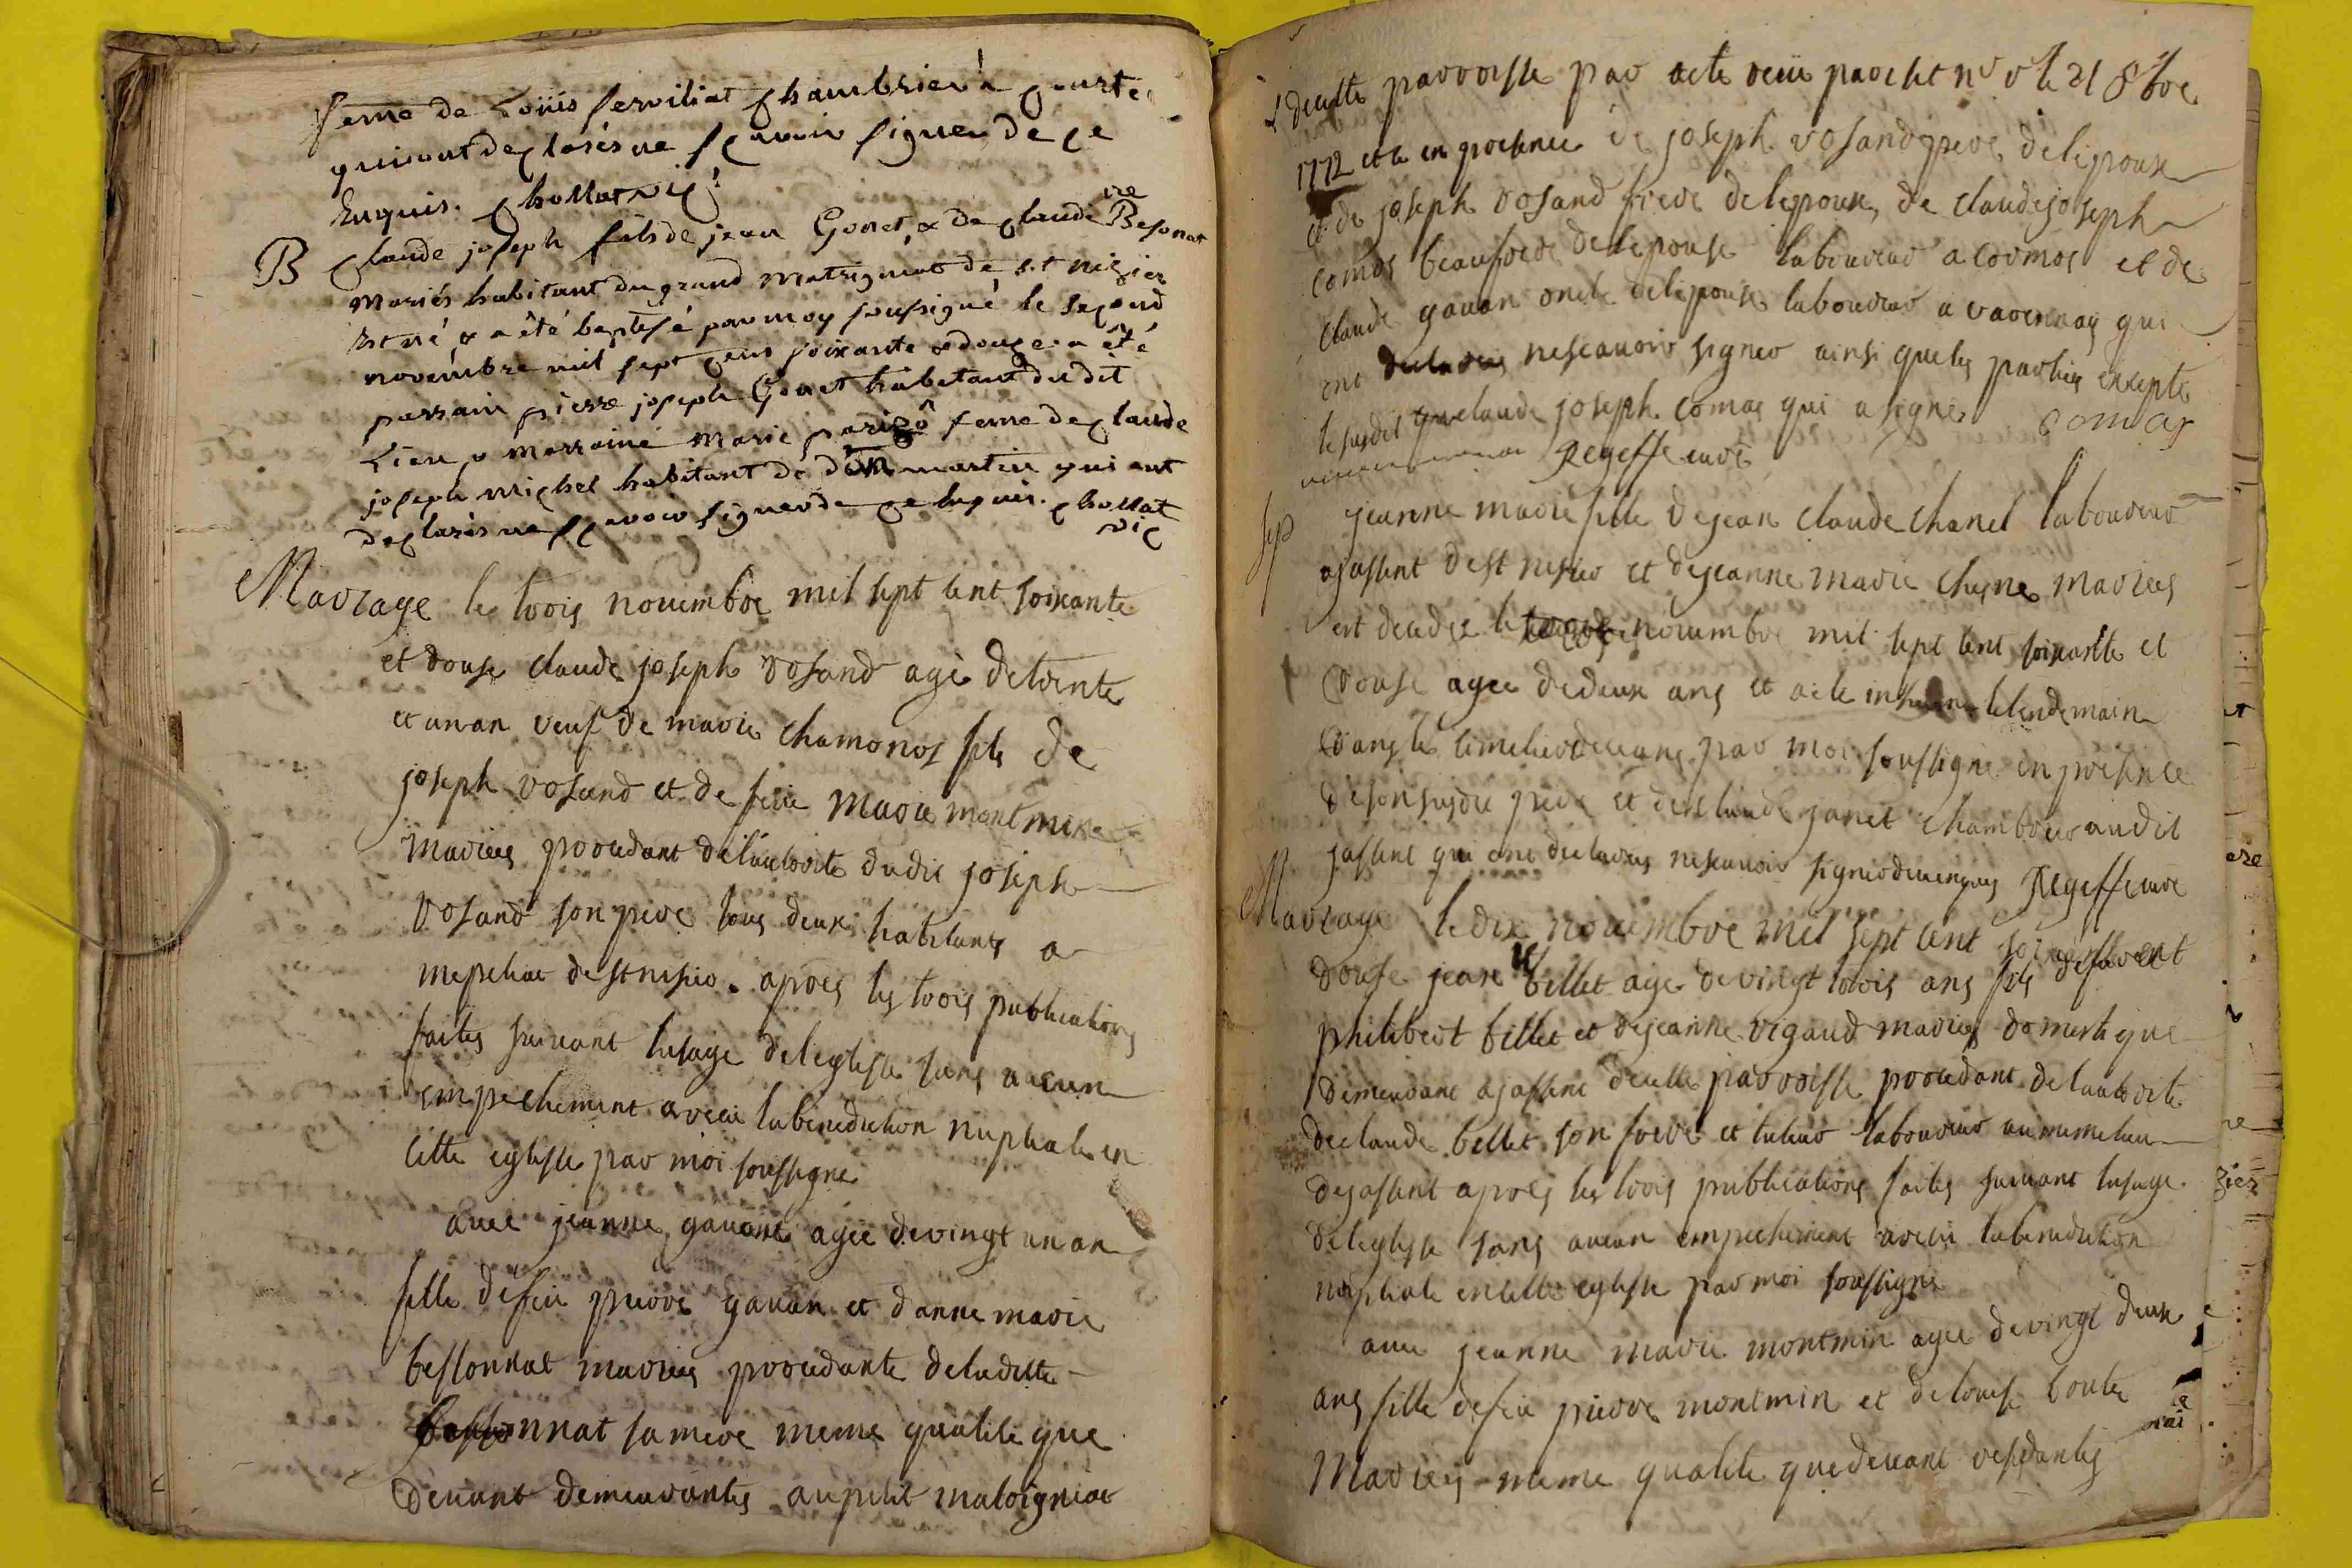 feme de Loüis serviliat chambrier à courte
qui ont declarés ne sçavoir signer de ce
Enquis. chollat vic:
B Claude joseph fils de jean Gonet, & de claude ne Besonat
mariés habitant du grand matrignat de s.t nizier
est né & a été baptisé par moy soussigné le second
novembre mil sept cens soixante & douze: a été
parrain pierre joseph Gonet habitant du dit
Lieu, & marraine marie parizô feme de claude
joseph michel habitant de dom martin qui ont
declarés ne sçavoir signer de ce enquis. chollat
vic
Mariage le trois novembre mil sept cent soixante
et douse claude joseph rosand agé de trente
et un an veuf de marie chamonos fils de
joseph rosand et de feüe marie montmin
mariées procedant de l'autorité dudit joseph
rosand son pere tous deux habitants a
mepeliat de st nisier. apres les trois publications
faites suivant lusage de leglisse sans aucun
empechement a recu la benediction nuptiale en
cette eglisse par moi soussigné
avec jeanne gavant agée de vingt un an
fille de feu pierre gavan et d'anne marie
bessonnat mariees procedante de laditte
bessonnat sa mere meme qualité que
devant demeurantes au petit matrigniat
decette parroisse par acte recu par et nre le 21 8bre
1772 et a en presence de joseph rosand pere de lepoux
et de joseph rosand frere de lepoux, de claude joseph
comas beaufrere de lepouse laboureur a cormos et de
claude gavan oncle de lepouse laboureur a varennay qui
ont declarés ne scavoir signer ainsi que les parties excepté
le susdit claude joseph comas qui a signé comas
Regeffe curé
sep jeanne marie fille de jean claude chanel laboureur
a jassent de st nisier et de jeanne marie chesne mariees
est decedée le novembre mil sept cent soixante et
douse agee de deux ans et a ete inhumé le lendemain
dans le cimetier de ceans par moi soussigné en presence
de son susdit pere et de claude janet chambrier audit
jassent qui ont declarés ne scavoir signer de ce enquis Regeffe curé
Mariage le dix novembre mil sept cent soixante et
douse jean billet age de vingt trois ans fils defavent
philibert billet et de jeanne rigaud mariés domestique
demeurant a jassent decette parroisse procedant de lautorité
de claude billet son frere et tuteur laboureur au meme lieu
de jassent apres les trois publications faites suivant lusage
de leglisse sans aucun empechement a recu la benediction
nuptiale en cette eglisse par moi soussigné
avec jeanne marie montmin agee de vingt deux
ans fille de feu pierre montmin et de louise boule
Mariees meme qualité que devant residantes